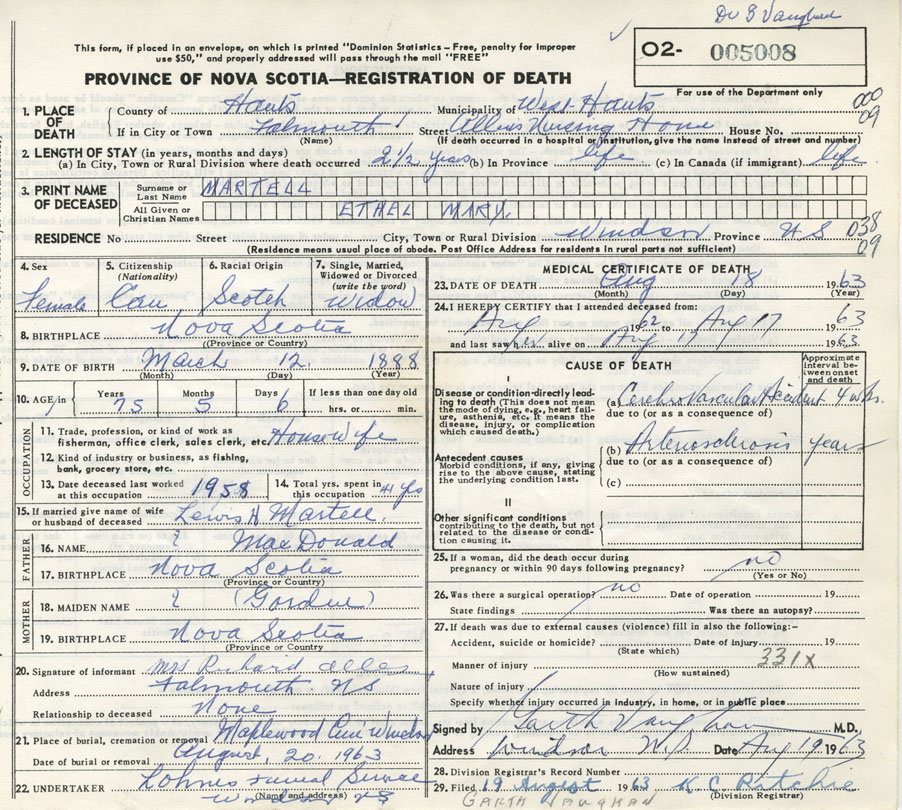 Dr G Vaughan
This form, if placed in an envelope, on which is printed "Dominion Statistics – Free, penalty for improper
use $50," and properly addressed will pass through the mail "FREE"
O2- 005008
For use of the Department only
PROVINCE OF NOVA SCOTIA—REGISTRATION OF DEATH
1. PLACE OF DEATH
County of Hants Municipality of West Hants 000
If in City or Town Falmouth Street Allens Nursing Home House No. 09
(Name) (If death occurred in a hospital or institution, give the name instead of street and number)
2. LENGTH OF STAY (in years, months and days)
(a) In City, Town or Rural Division where death occurred 2 1/2 years (b) In Province life (c) In Canada (if immigrant) life
3. PRINT NAME OF DECEASED
Surname or Last Name MARTELL
All Given or Christian Names ETHEL MARY.
RESIDENCE No. Street City, Town or Rural Division Windsor Province N S 038
(Residence means usual place of abode. Post Office Address for residents in rural parts not sufficient) 09
4. Sex Female
5. Citizenship (Nationality) Can
6. Racial Origin Scotch
7. Single, Married, Widowed or Divorced (write the word) Widow
8. BIRTHPLACE Nova Scotia
(Province or Country)
9. DATE OF BIRTH March 12 1888
(Month) (Day) (Year)
10. AGE in Years 75 Months 5 Days 6 If less than one day old
hrs. or min.
OCCUPATION
11. Trade, profession or kind of work as
fisherman, office clerk, sales clerk, etc. Housewife
12. Kind of industry or business, as fishing,
bank, grocery store, etc.
13. Date deceased last worked at this occupation 1958
14. Total yrs. spent in this occupation 41 yrs
15. If married give name of wife
or husband of deceased Lewis H Martell.
FATHER
16. NAME ? MacDonald
17. BIRTHPLACE Nova Scotia
(Province or Country)
MOTHER
18. MAIDEN NAME ? (Gordie)
19. BIRTHPLACE Nova Scotia
(Province or Country)
20. Signature of informant Mrs Richard Allen
Address Falmouth. NS
Relationship to deceased None
21. Place of burial, cremation or removal Maplewood Cem Windsor
Date of burial or removal August, 20. 1963
22. UNDERTAKER Lohnes Funeral Service
(Name and address) Windsor NS
MEDICAL CERTIFICATE OF DEATH
23. DATE OF DEATH Aug 18 1963
(Month) (Day) (Year)
24. I HEREBY CERTIFY that I attended deceased from:
Aug 1962 to Aug 17 1963
and last saw her alive on Aug 17 1963
CAUSE OF DEATH
Approximate interval between onset and death
I
Disease or condition directly leading to death (This does not mean the mode of dying, e.g., heart failure, asthenia, etc. It means the disease, injury, or complication which caused death.)
(a) Cerebro Vascular Accident 4 wks.
due to (or as a consequence of)
Antecedent causes
Morbid conditions, if any, giving rise to the above cause, stating the underlying condition last.
(b) Arteriosclerosis years
due to (or as a consequence of)
(c)
II
Other significant conditions
contributing to the death, but not related to the disease or condition causing it.
25. If a woman, did the death occur during
pregnancy or within 90 days following pregnancy? no
(Yes or No)
26. Was there a surgical operation? no Date of operation 19
State findings Was there an autopsy?
27. If death was due to external causes (violence) fill in also the following:–
Accident, suicide or homicide? Date of injury 19
(State which) 331x
Manner of injury
(How sustained)
Nature of injury
Specify whether injury occurred in industry, in home, or in public place
Signed by Garth Vaughan M.D.
Address Windsor N.S. Date Aug 19 1963
28. Division Registrar's Record Number
29. Filed 19 August 1963 K C Ritchie
(Division Registrar)
GARTH VAUGHAN